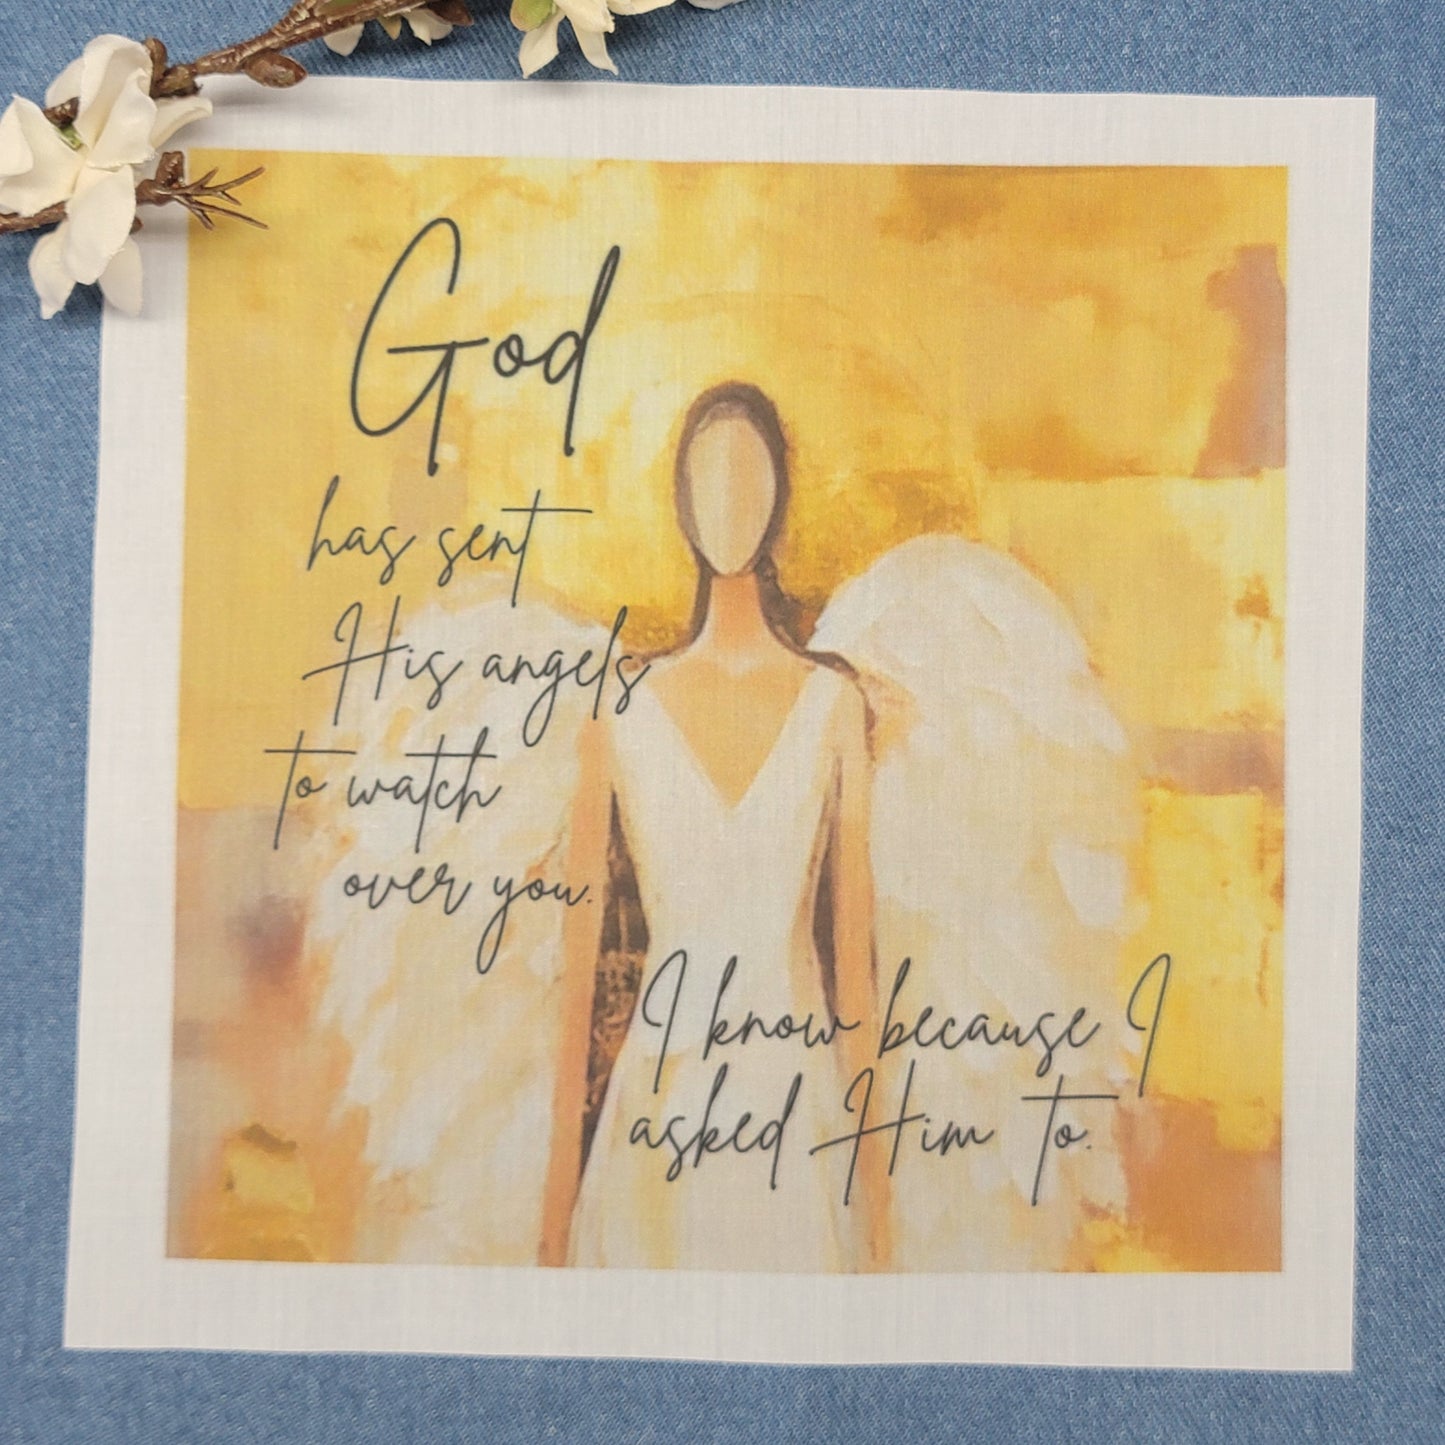 God
has sent
His angels
to watch
over you.
I know because I
asked Him to.